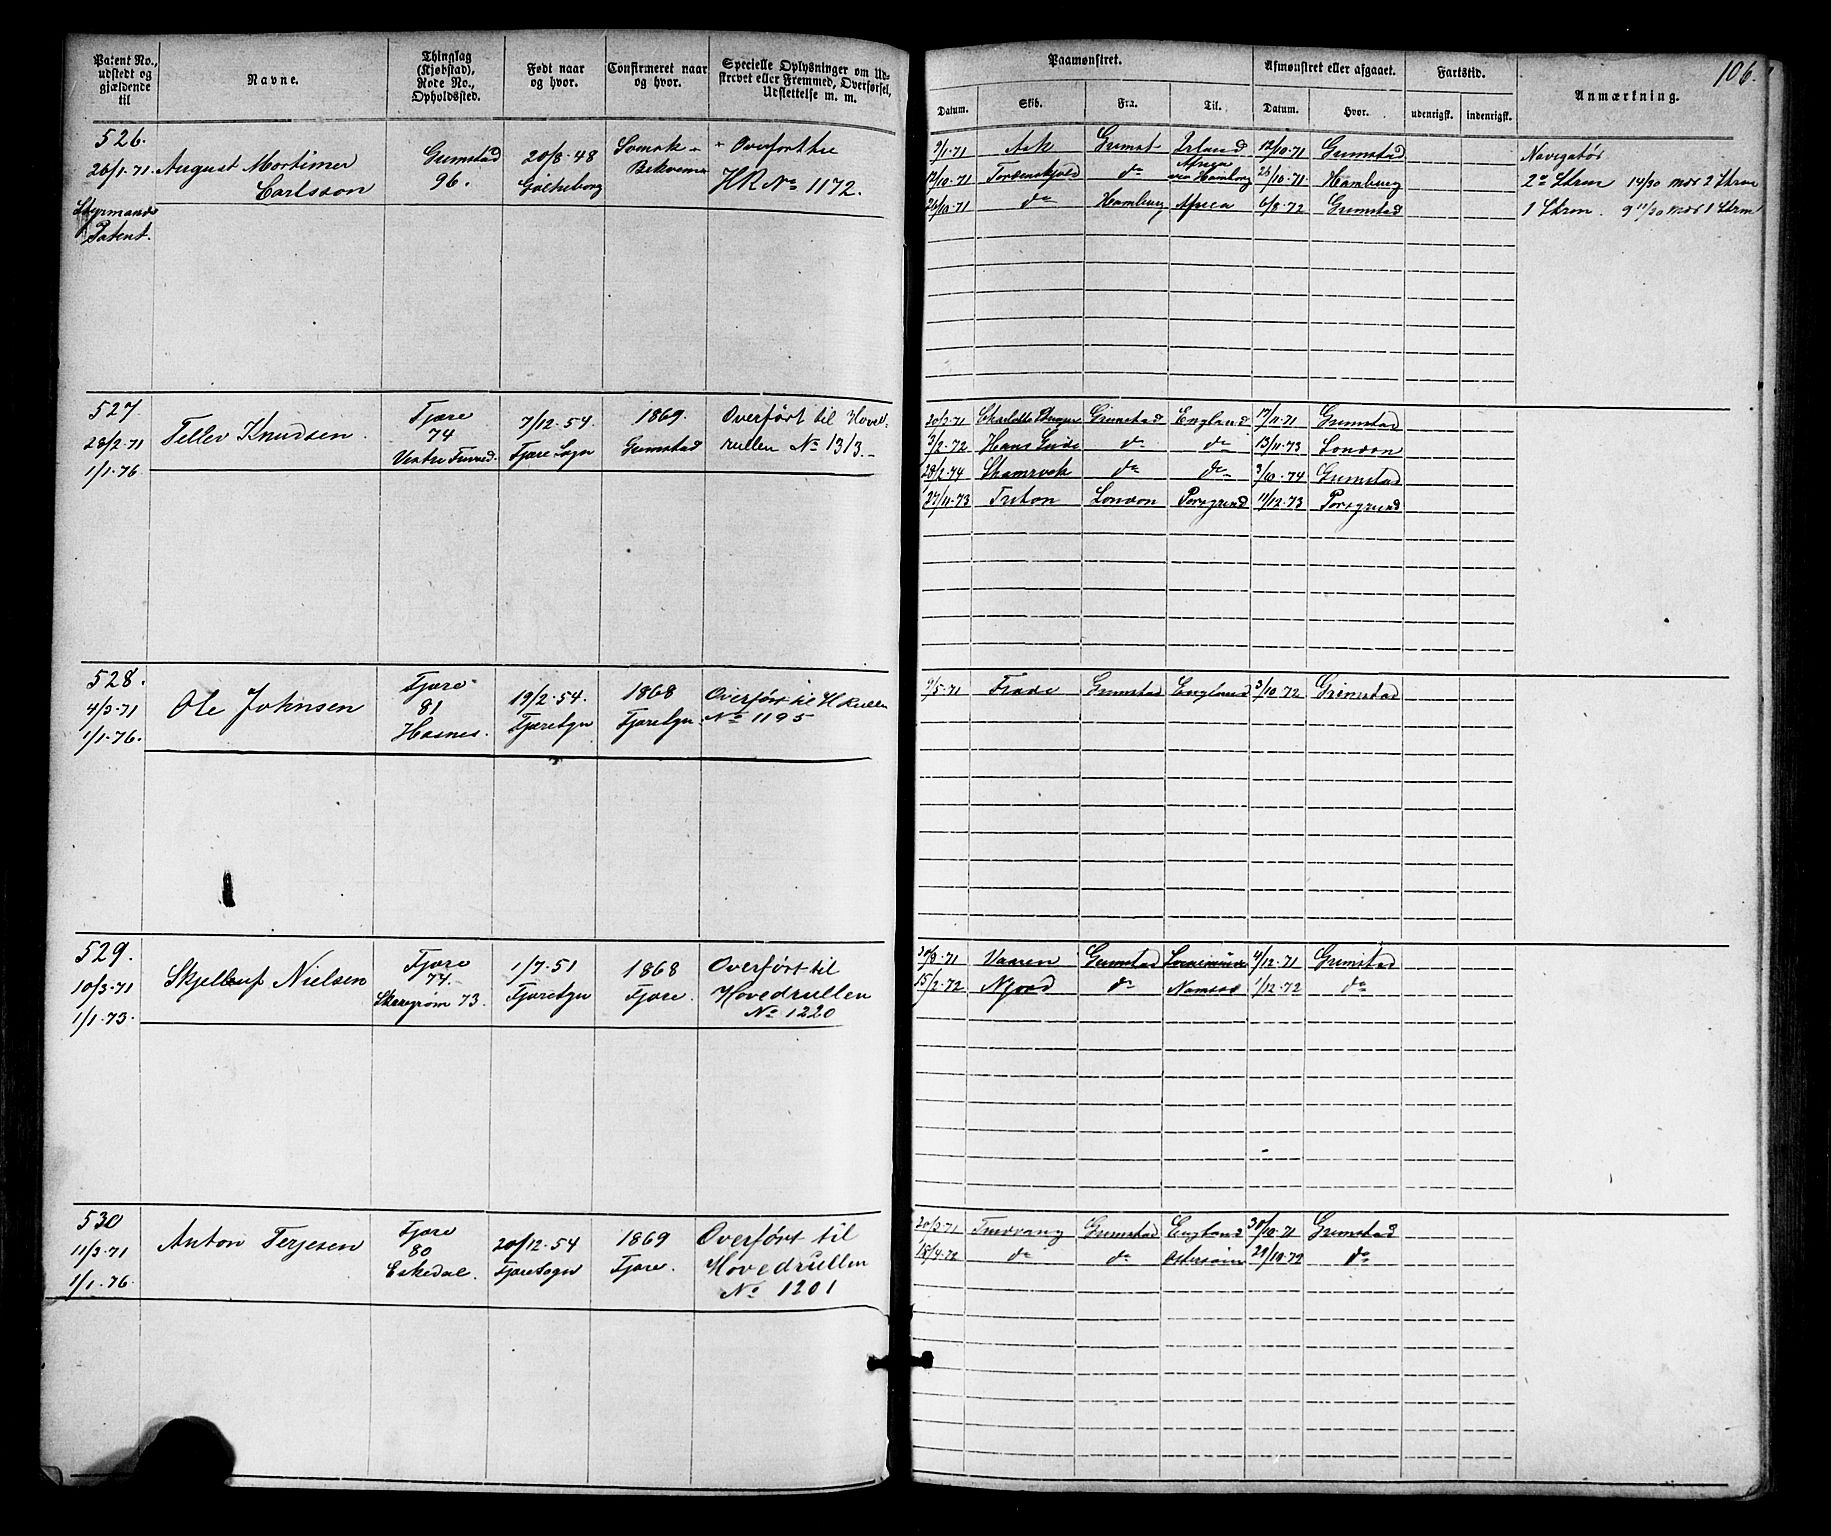 106.
Patent No., udstedt og gjældende til
Navne.
Thinglag (Kjøbstad), Rode No., Opholdssted.
Født naar og hvor.
Confirmeret naar og hvor.
Specielle Oplysninger om Udskrevet eller Fremmed, Overførsel, Udslettelse m. m.
Paamønstret.
Afmønstret eller afgaaet.
Fartstid.
Anmærkning.
Datum.
Skib.
Fra.
Til.
Datum.
Hvor.
udenrigsk.
indenrigsk.
526.
26/1.71.
Styrmands Patent.
August Mortimer
Carlsson
Grimstad
96.
20/8.48
Gøtheborg
Svensk
Overført til
HR No 1172.
9/1.71 Ask Grimst Irland 12/10.71 Grimstad Navigatør
12/10.71 Tordenskjold do Africa via Hamborg 26/10.71 Hamburg
26/10.71 do Hamburg Africa 6/8.72 Grimstad
527.
28/2.71
1/1.76.
Tellev Knudsen
Fjære
74
7/12.54.
Fjære Sogn
1869.
Grimstad
Overført til Hoved-
rullen No 1313.
20/3.71 Grimstad England 17/11.71 Grimstad
3/2.72 do do 13/11.73 London
28/2.74 Shamrock do do 3/10.74 Grimstad
27/11.73 Triton London Porsgrund 11/12.73 Porsgrund
528.
4/3.71
1/1.76.
Ole Johnsen
Fjære
81
Hasnes.
19/2.54.
Fjæresgn
1868
Fjæresgn
Overført til H Rullen
No 1195
/5.71 Grimstad England 3/10.72 Grimstad
529.
10/3.71
1/1.73.
Skjelluf Nielsen
Fjære
74.
1/7.51
Fjæresgn
1868
Fjære.
Overført til
Hovedrullen
No 1220
Vaaren Grimstad 4/12.71 Grimstad
15/2.72 Njord do Namsos 1/12.72 do
530
11/3.71
1/1.76
Anton Terjesen
Fjære
80
Eskedal.
20/12.54
Fjæresogn
1869
Fjære.
Overført til
Hovedrullen
No 1201
20/3.71 Grimstad England 30/10.71 Grimstad
18/4.72 do do Østersøen 29/10.72 do